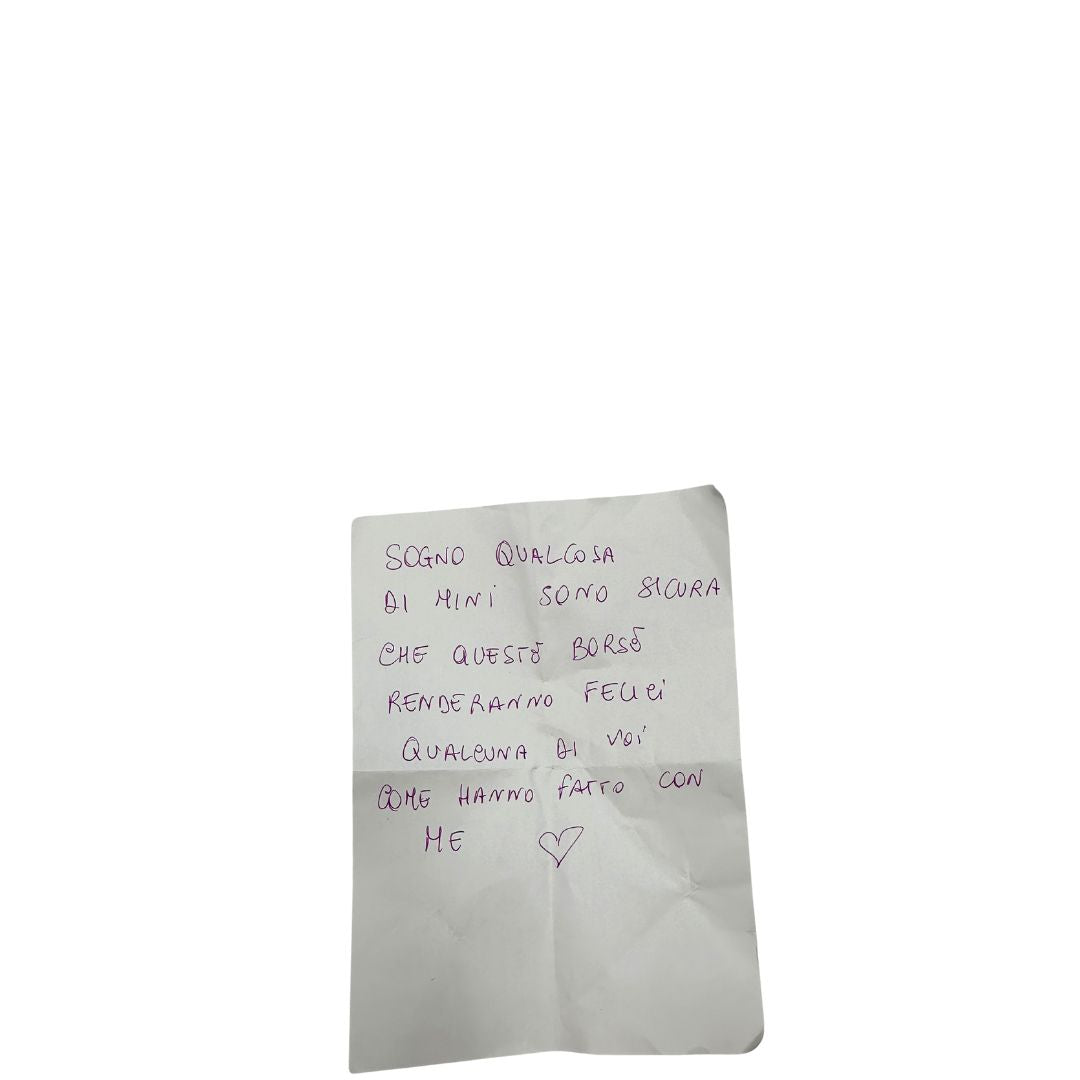 SOGNO QUALCOSA
DI MINI SONO SICURA
CHE QUESTE BORSE
RENDERANNO FELICI
QUALCUNA DI VOI
COME HANNO FATTO CON
ME ♡